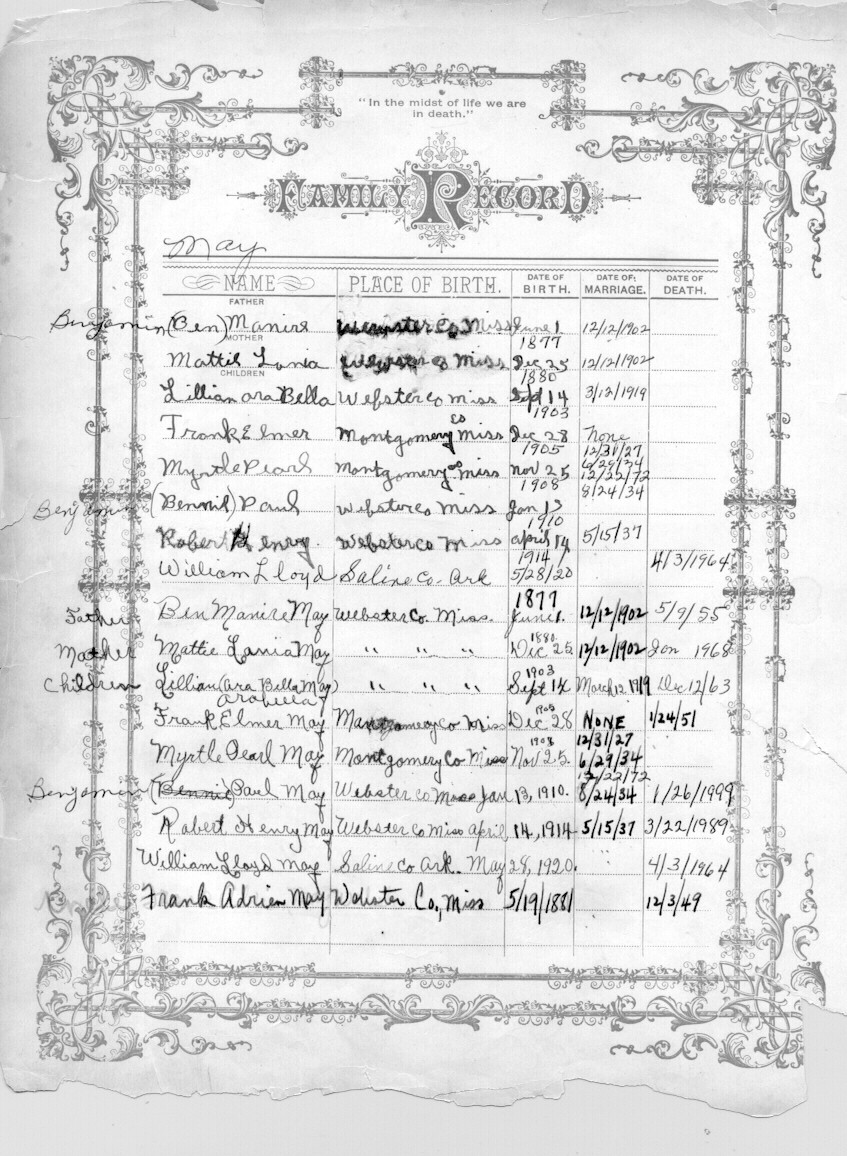 "In the midst of life we are
in death."
FAMILY RECORD
May
NAME PLACE OF BIRTH. DATE OF BIRTH. DATE OF MARRIAGE. DATE OF DEATH.
FATHER
Benjamin (Ben) Manire Webster Co Miss June 1 1877 12/12/1902
MOTHER
Mattie Lania Webster Co Miss Dec 25 1880 12/12/1902
CHILDREN
Lillian ara Bella Webster co miss Sept 14 1903 3/12/1919
Frank Elmer Montgomery co Miss Dec 28 1905 None
Myrtle Pearl Montgomery co miss Nov 25 1908 12/31/27 6/29/34 12/22/72
Benjamin (Bennie) Paul Webster co Miss Jan 13 1910 8/24/34
Robert Henry Webster co Miss april 14 1914 5/15/37
William Lloyd Saline Co. Ark 5/28/20 4/3/1964
Father Ben Manire May Webster Co. Miss. 1877 June 1. 12/12/1902 5/9/55
Mother Mattie Lania May " " " 1880 Dec 25 12/12/1902 Jan 1968
Children Lillian (Ara Bella May) " " " 1903 Sept 14 March 12 1919 Dec 12/63
arabella
Frank Elmer May Montgomery co Miss 1905 Dec 28 NONE 1/24/51
Myrtle Pearl May Montgomery Co Miss 1908 Nov 25. 12/31/27 6/29/34 12/22/72
Benjamin (Bennie) Paul May Webster co Miss Jan 13, 1910. 8/24/34 1/26/1999
Robert Henry May Webster co Miss april 14, 1914 5/15/37 3/22/1989
William Lloyd May Saline Co Ark. May 28, 1920. " 4/3/1964
Frank Adrien May Webster Co., Miss 5/19/1881 12/3/49